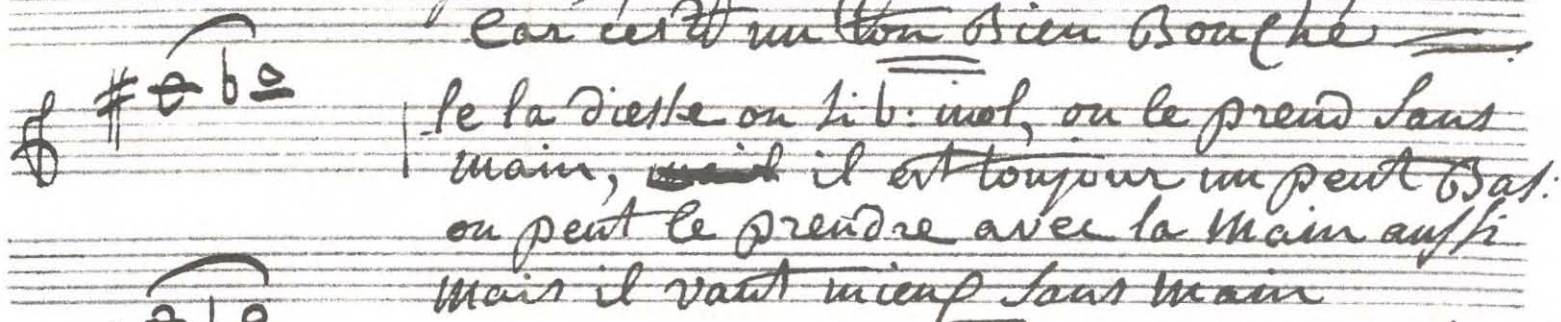 Car cest un ton Bien Bouché
le la diesse ou si b: mol, on le prend sans
main, il est toujour un peut Bas:
on peut le prendre avec la main aussi
mais il vaut mieux sans main